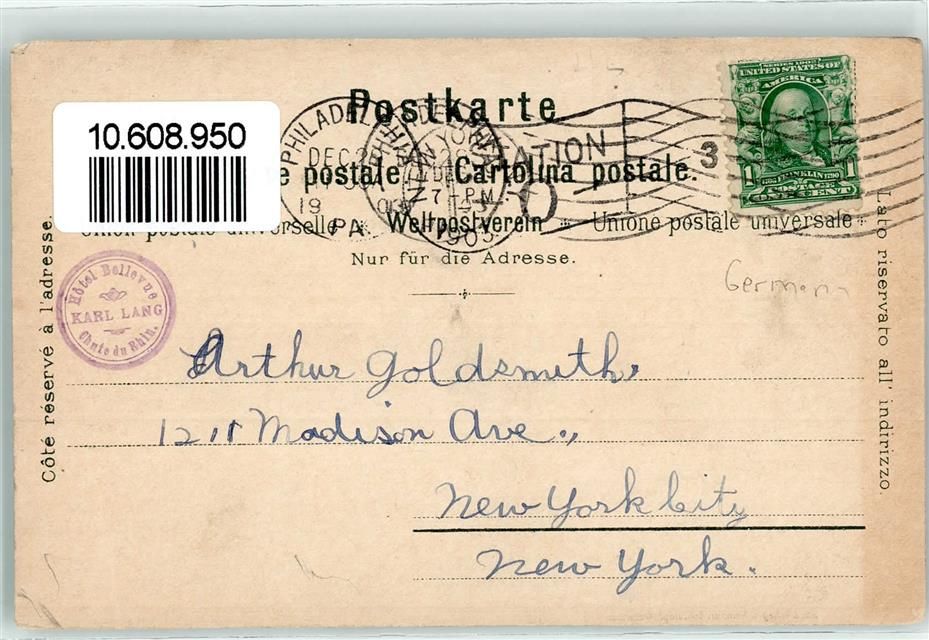 10.608.950
Postkarte
e postale. Cartolina postale.
Union postale universelle * Weltpostverein * Unione postale universale *
Nur für die Adresse.
PHILADELPHIA
DEC
19
PA.
NEW YORK
7 - PM
1903
STATION
O
3
SERIES 1902
UNITED STATES OF
AMERICA
1 1
FRANKLIN
POSTAGE
ONE CENT
Germany
Hôtel Bellevue
KARL LANG
Chute du Rhin.
Côté réservé à l'adresse.
Lato riservato all' indirizzo.
Arthur Goldsmith,
1211 Madison Ave.,
New York City
New York.